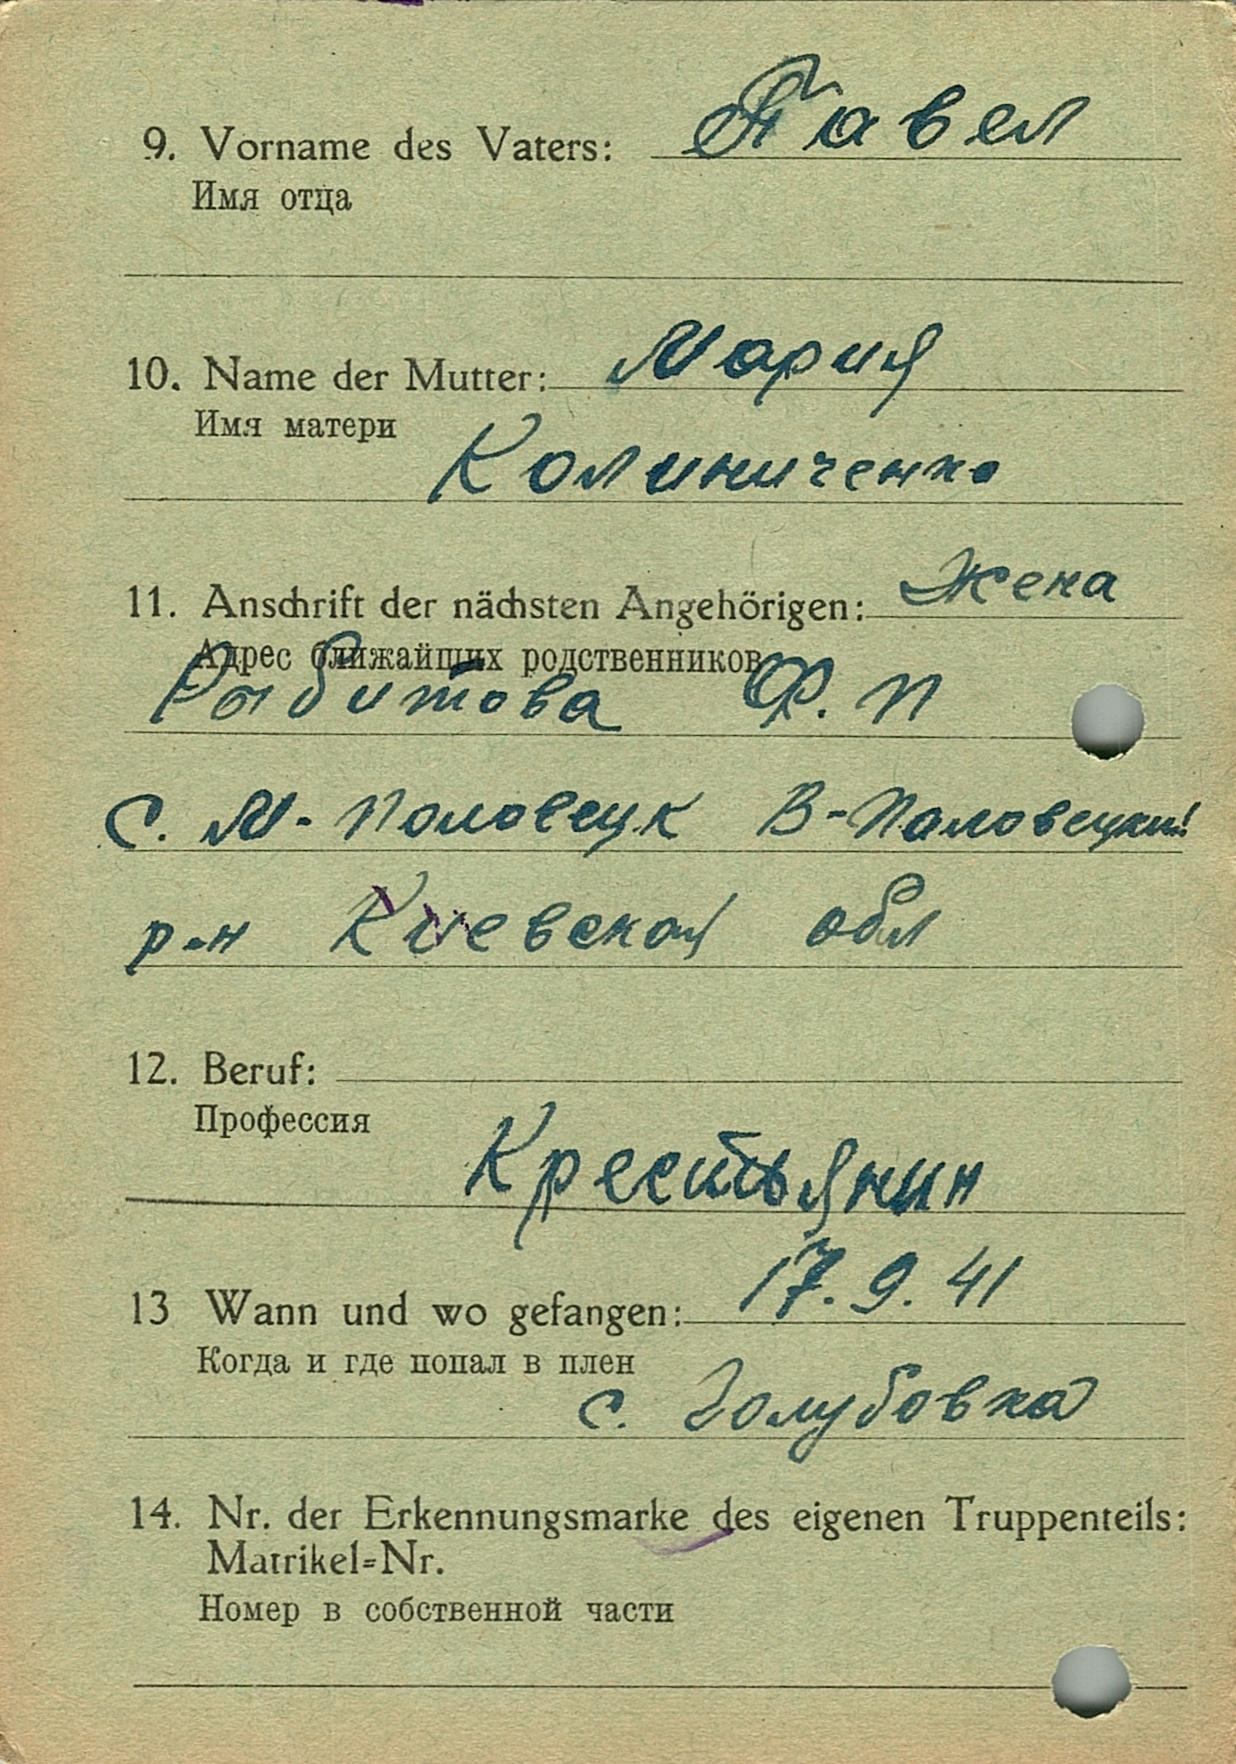 9. Vorname des Vaters: Павел
Имя отца
10. Name der Mutter: Мария
Имя матери
Колиниченко
11. Anschrift der nächsten Angehörigen: Жена
Адрес ближайших родственников
Рыбитова Ф. П
с. М-Половецк В-Паловецкий
р-н Киевской обл
12. Beruf:
Профессия
Крестьянин
13 Wann und wo gefangen: 17. 9. 41
Когда и где попал в плен
с. Голубовка
14. Nr. der Erkennungsmarke des eigenen Truppenteils:
Matrikel=Nr.
Номер в собственной части